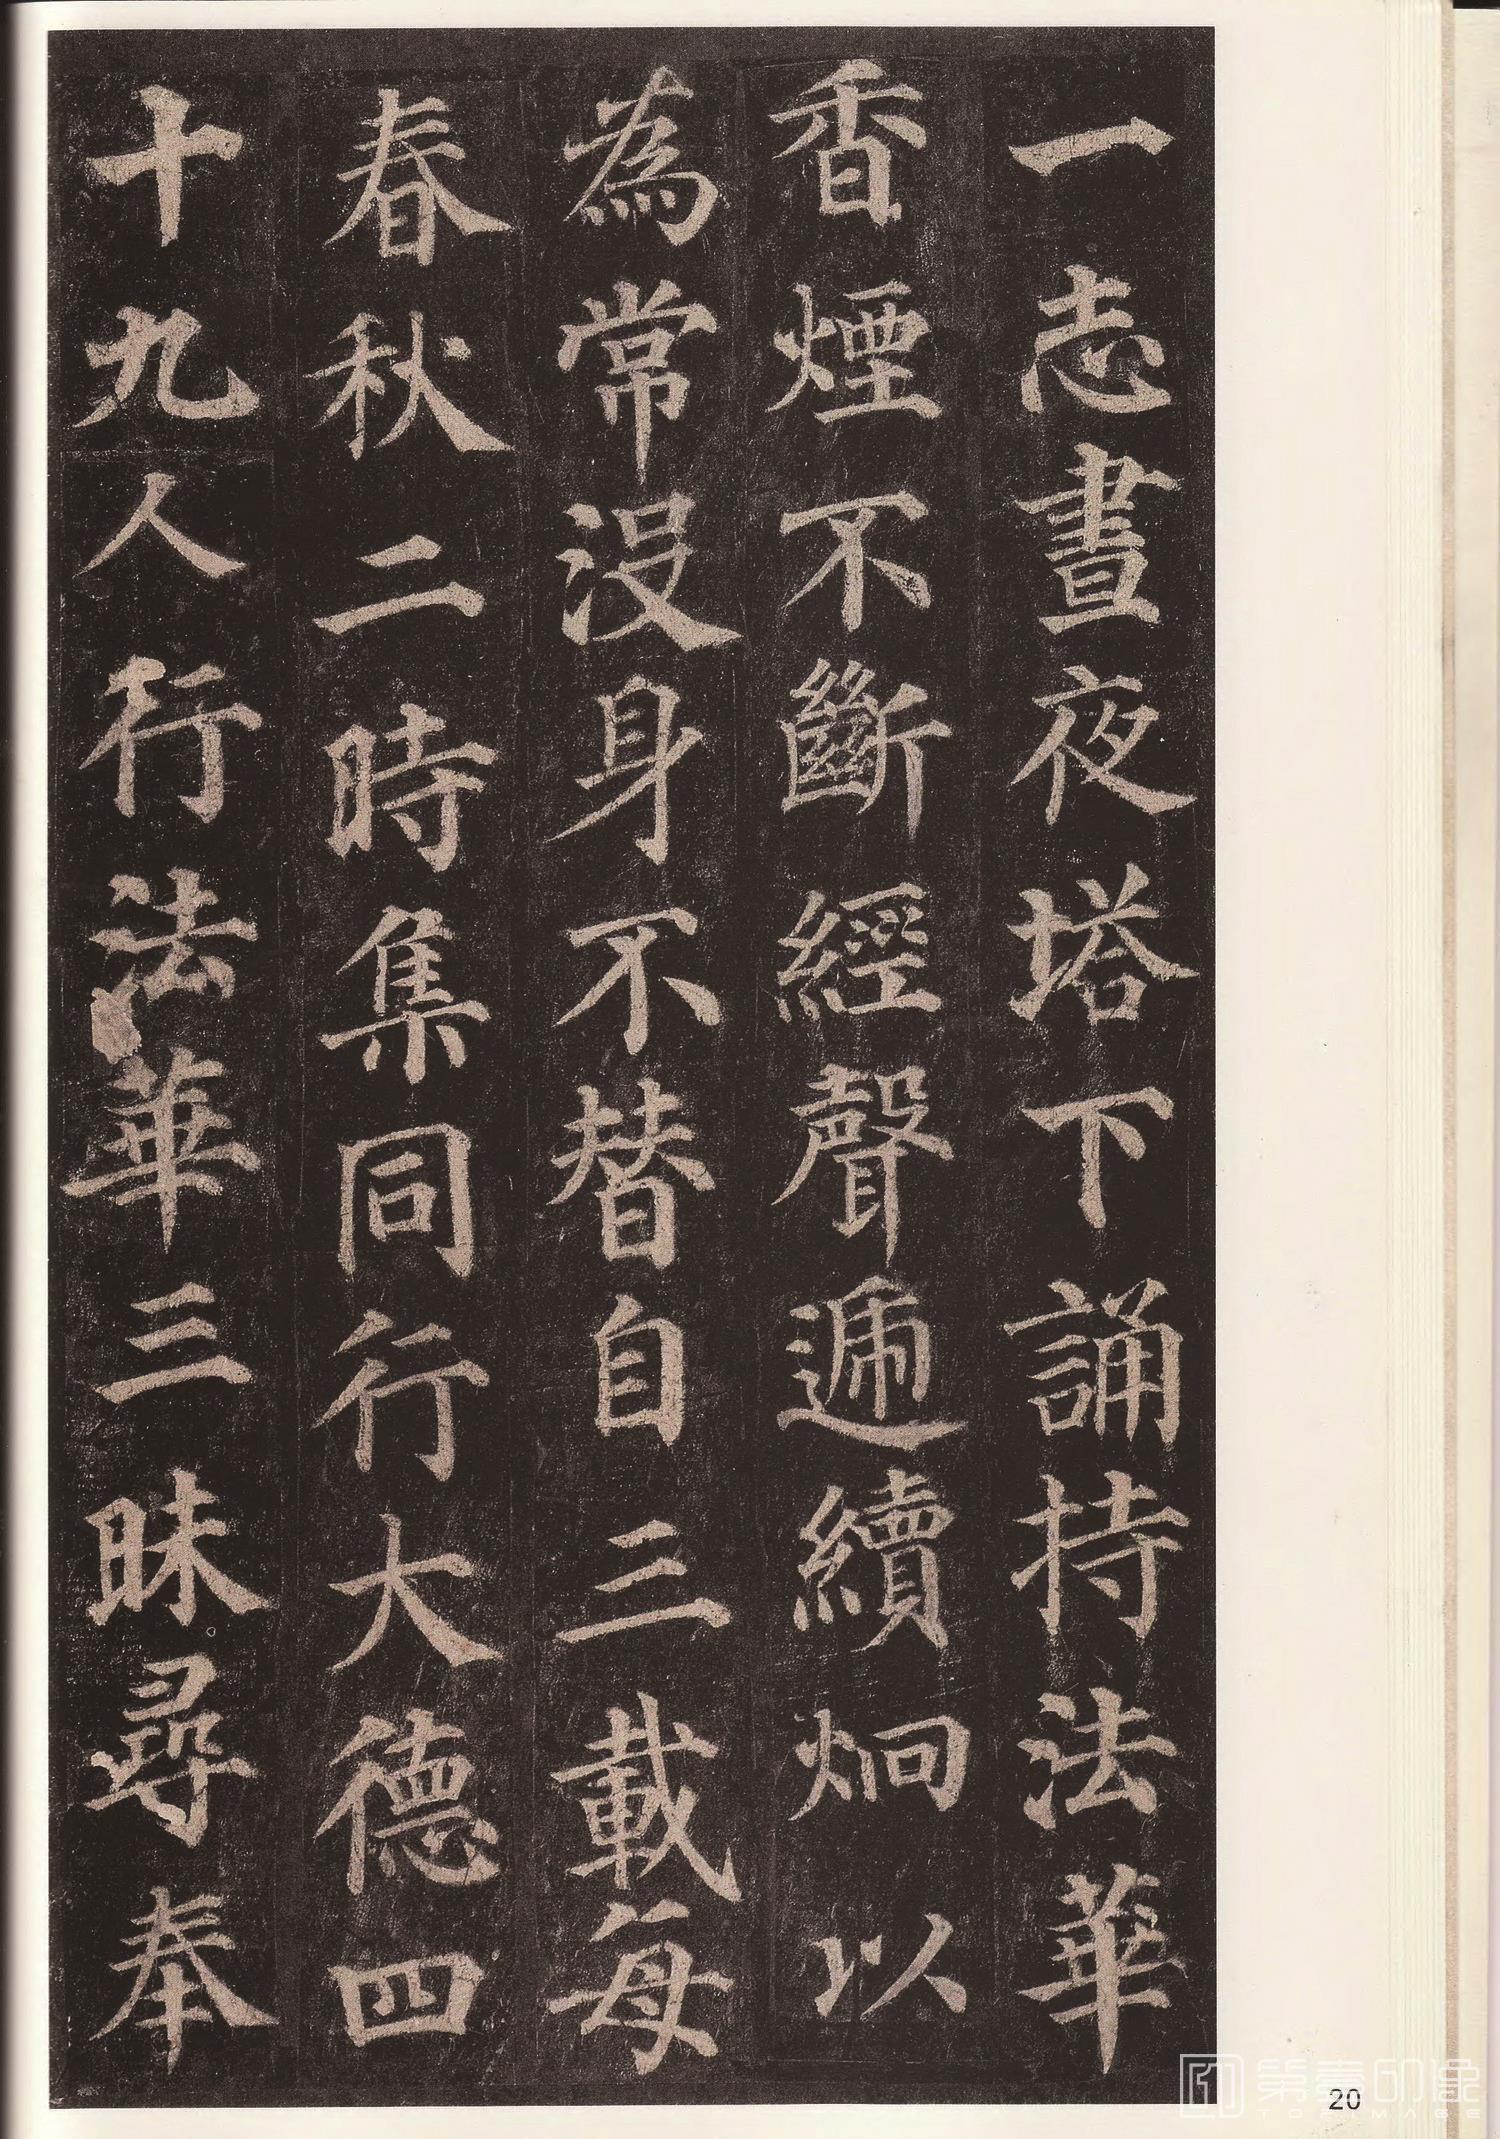 一志晝夜塔下誦持法華
香煙不斷經聲遞續炯以
為常沒身不替自三載每
春秋二時集同行大德四
十九人行法華三昧尋奉
20
TOPIMAGE